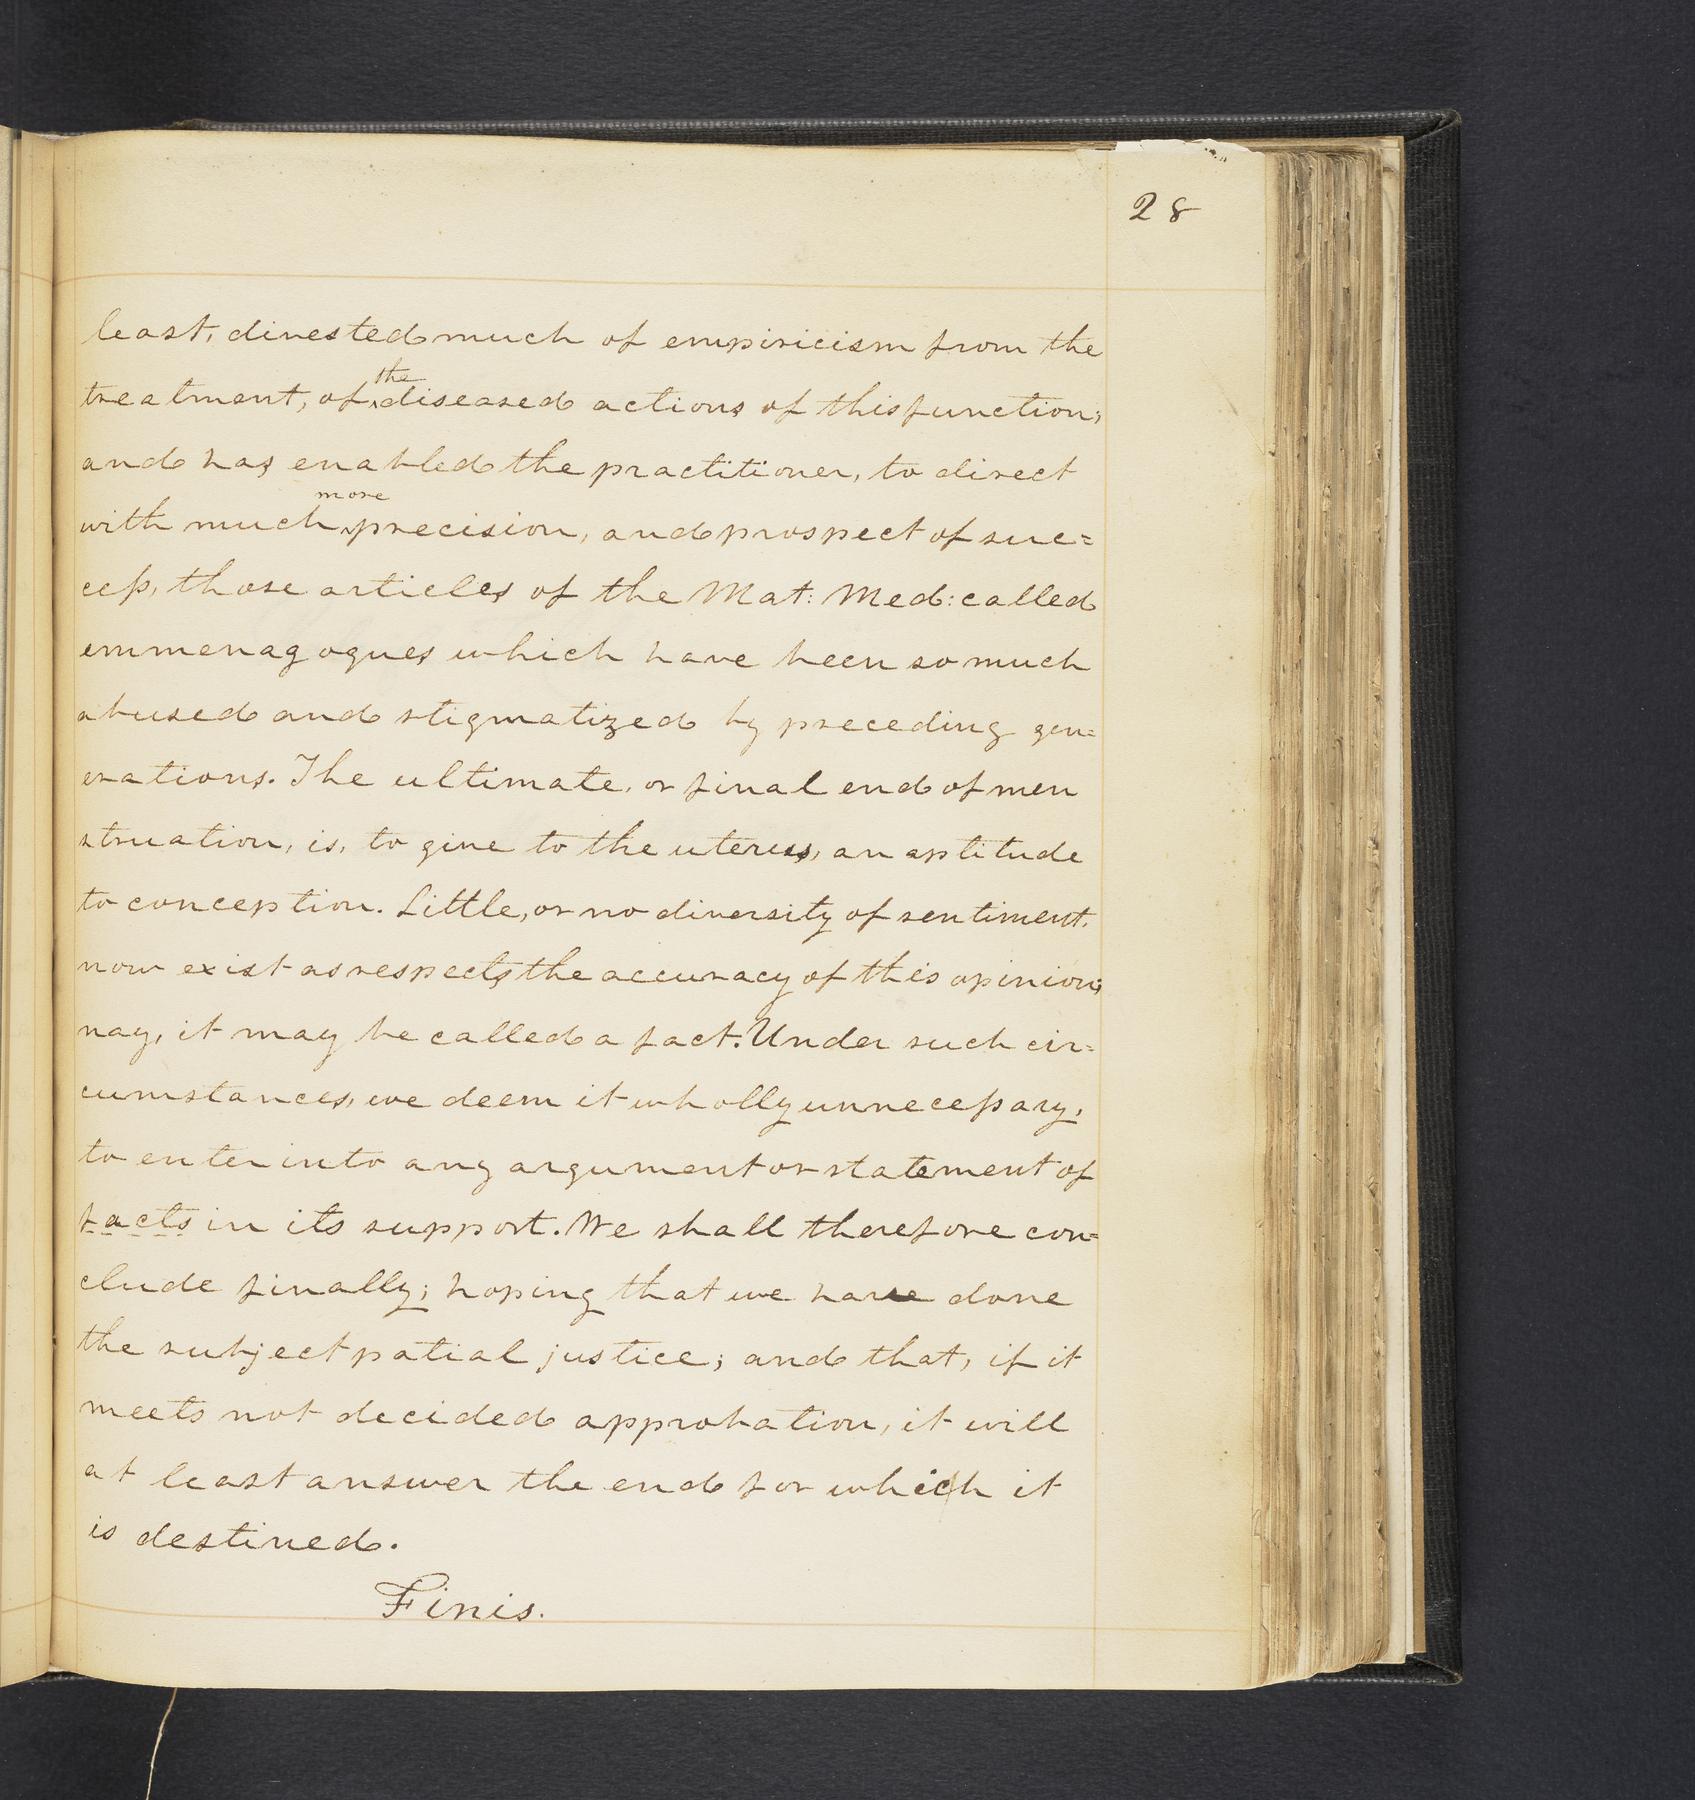 28
least, divested much of empiricism from the
treatment, of ^the diseased actions of this function;
and has enabled the practitioner, to direct
with much ^more precision, and prospect of suc=
ceſs, those articles of the Mat: Med: called
emmenagogues which have been so much
abused and stigmatized by preceding gen=
erations. The ultimate, or final end of men
struation, is, to give to the uterus, an aptitude
to conception. Little, or no diversity of sentiment.
now exist as respects the accuracy of this opinion;
nay, it may be called a fact. Under such cir=
cumstances, we deem it wholly unneceſsary,
to enter into any argument or statement of
facts in its support. We shall therefore con=
clude finally; hoping that we have done
the subject patial justice; and that, if it
meets not decided approbation, it will
at least answer the end for which it
is destined.
Finis.